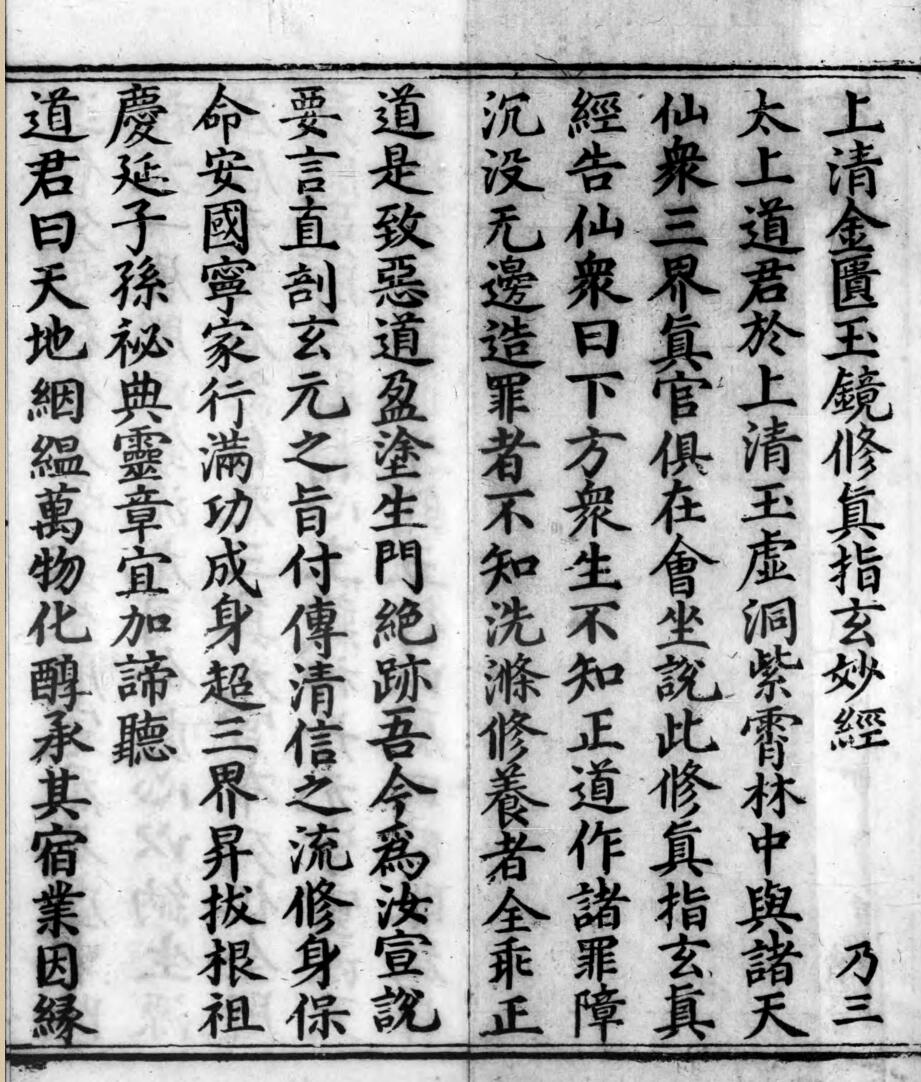 上清金匱玉鏡修眞指玄妙經 乃三
太上道君於上清玉虛洞紫霄林中與諸天
仙衆三界眞官俱在會坐說此修眞指玄眞
經告仙衆曰下方衆生不知正道作諸罪障
沉没无邊造罪者不知洗滌修養者全乖正
道是致惡道盈塗生門絶跡吾今爲汝宣說
要言直剖玄元之旨付傳清信之流修身保
命安國寧家行滿功成身超三界昇拔根祖
慶延子孫祕典靈章宜加諦聽
道君曰天地絪緼萬物化醇承其宿業因縁